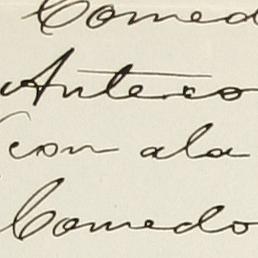 Comed
Antero
(con ala
Comedo